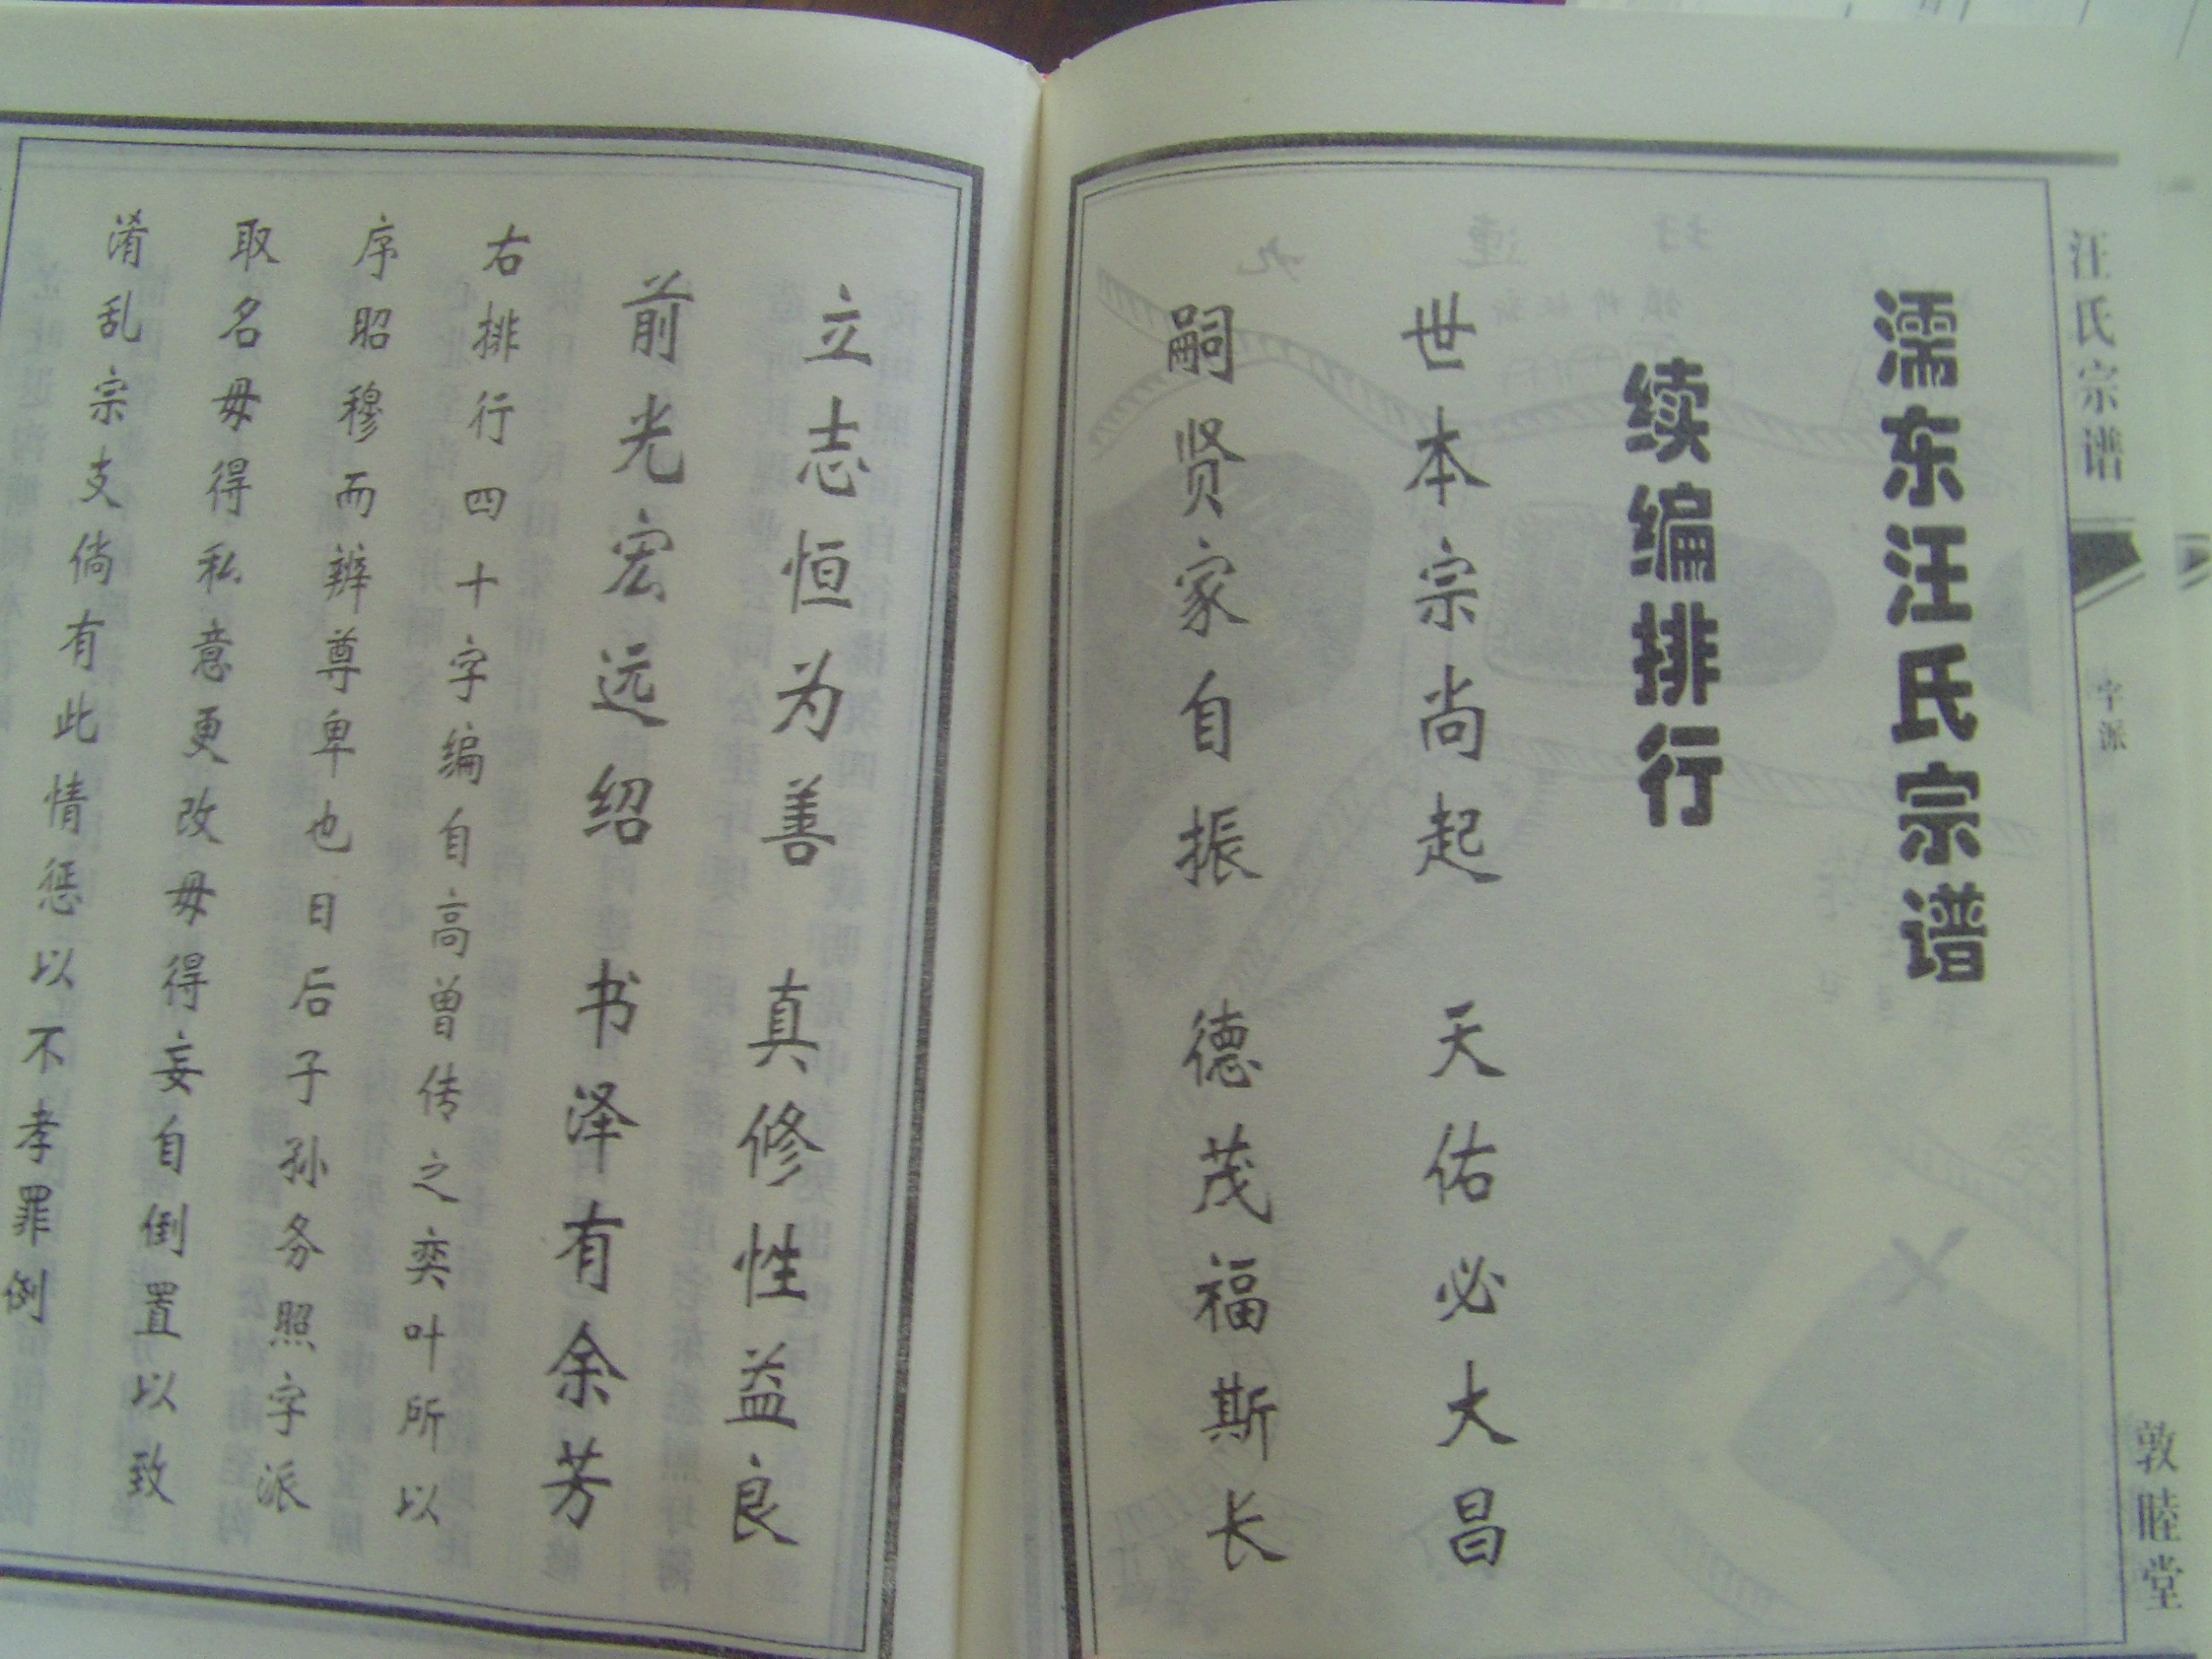 汪氏宗谱
字派
敦睦堂
濡东汪氏宗谱
续编排行
世本宗尚起 天佑必大昌
嗣贤家自振 德茂福斯长
立志恒为善 真修性益良
前光宏远绍 书泽有余芳
右排行四十字编自高曾传之奕叶所以
序昭穆而辨尊卑也日后子孙务照字派
取名毋得私意更改毋得妄自倒置以致
淆乱宗支倘有此情惩以不孝罪例